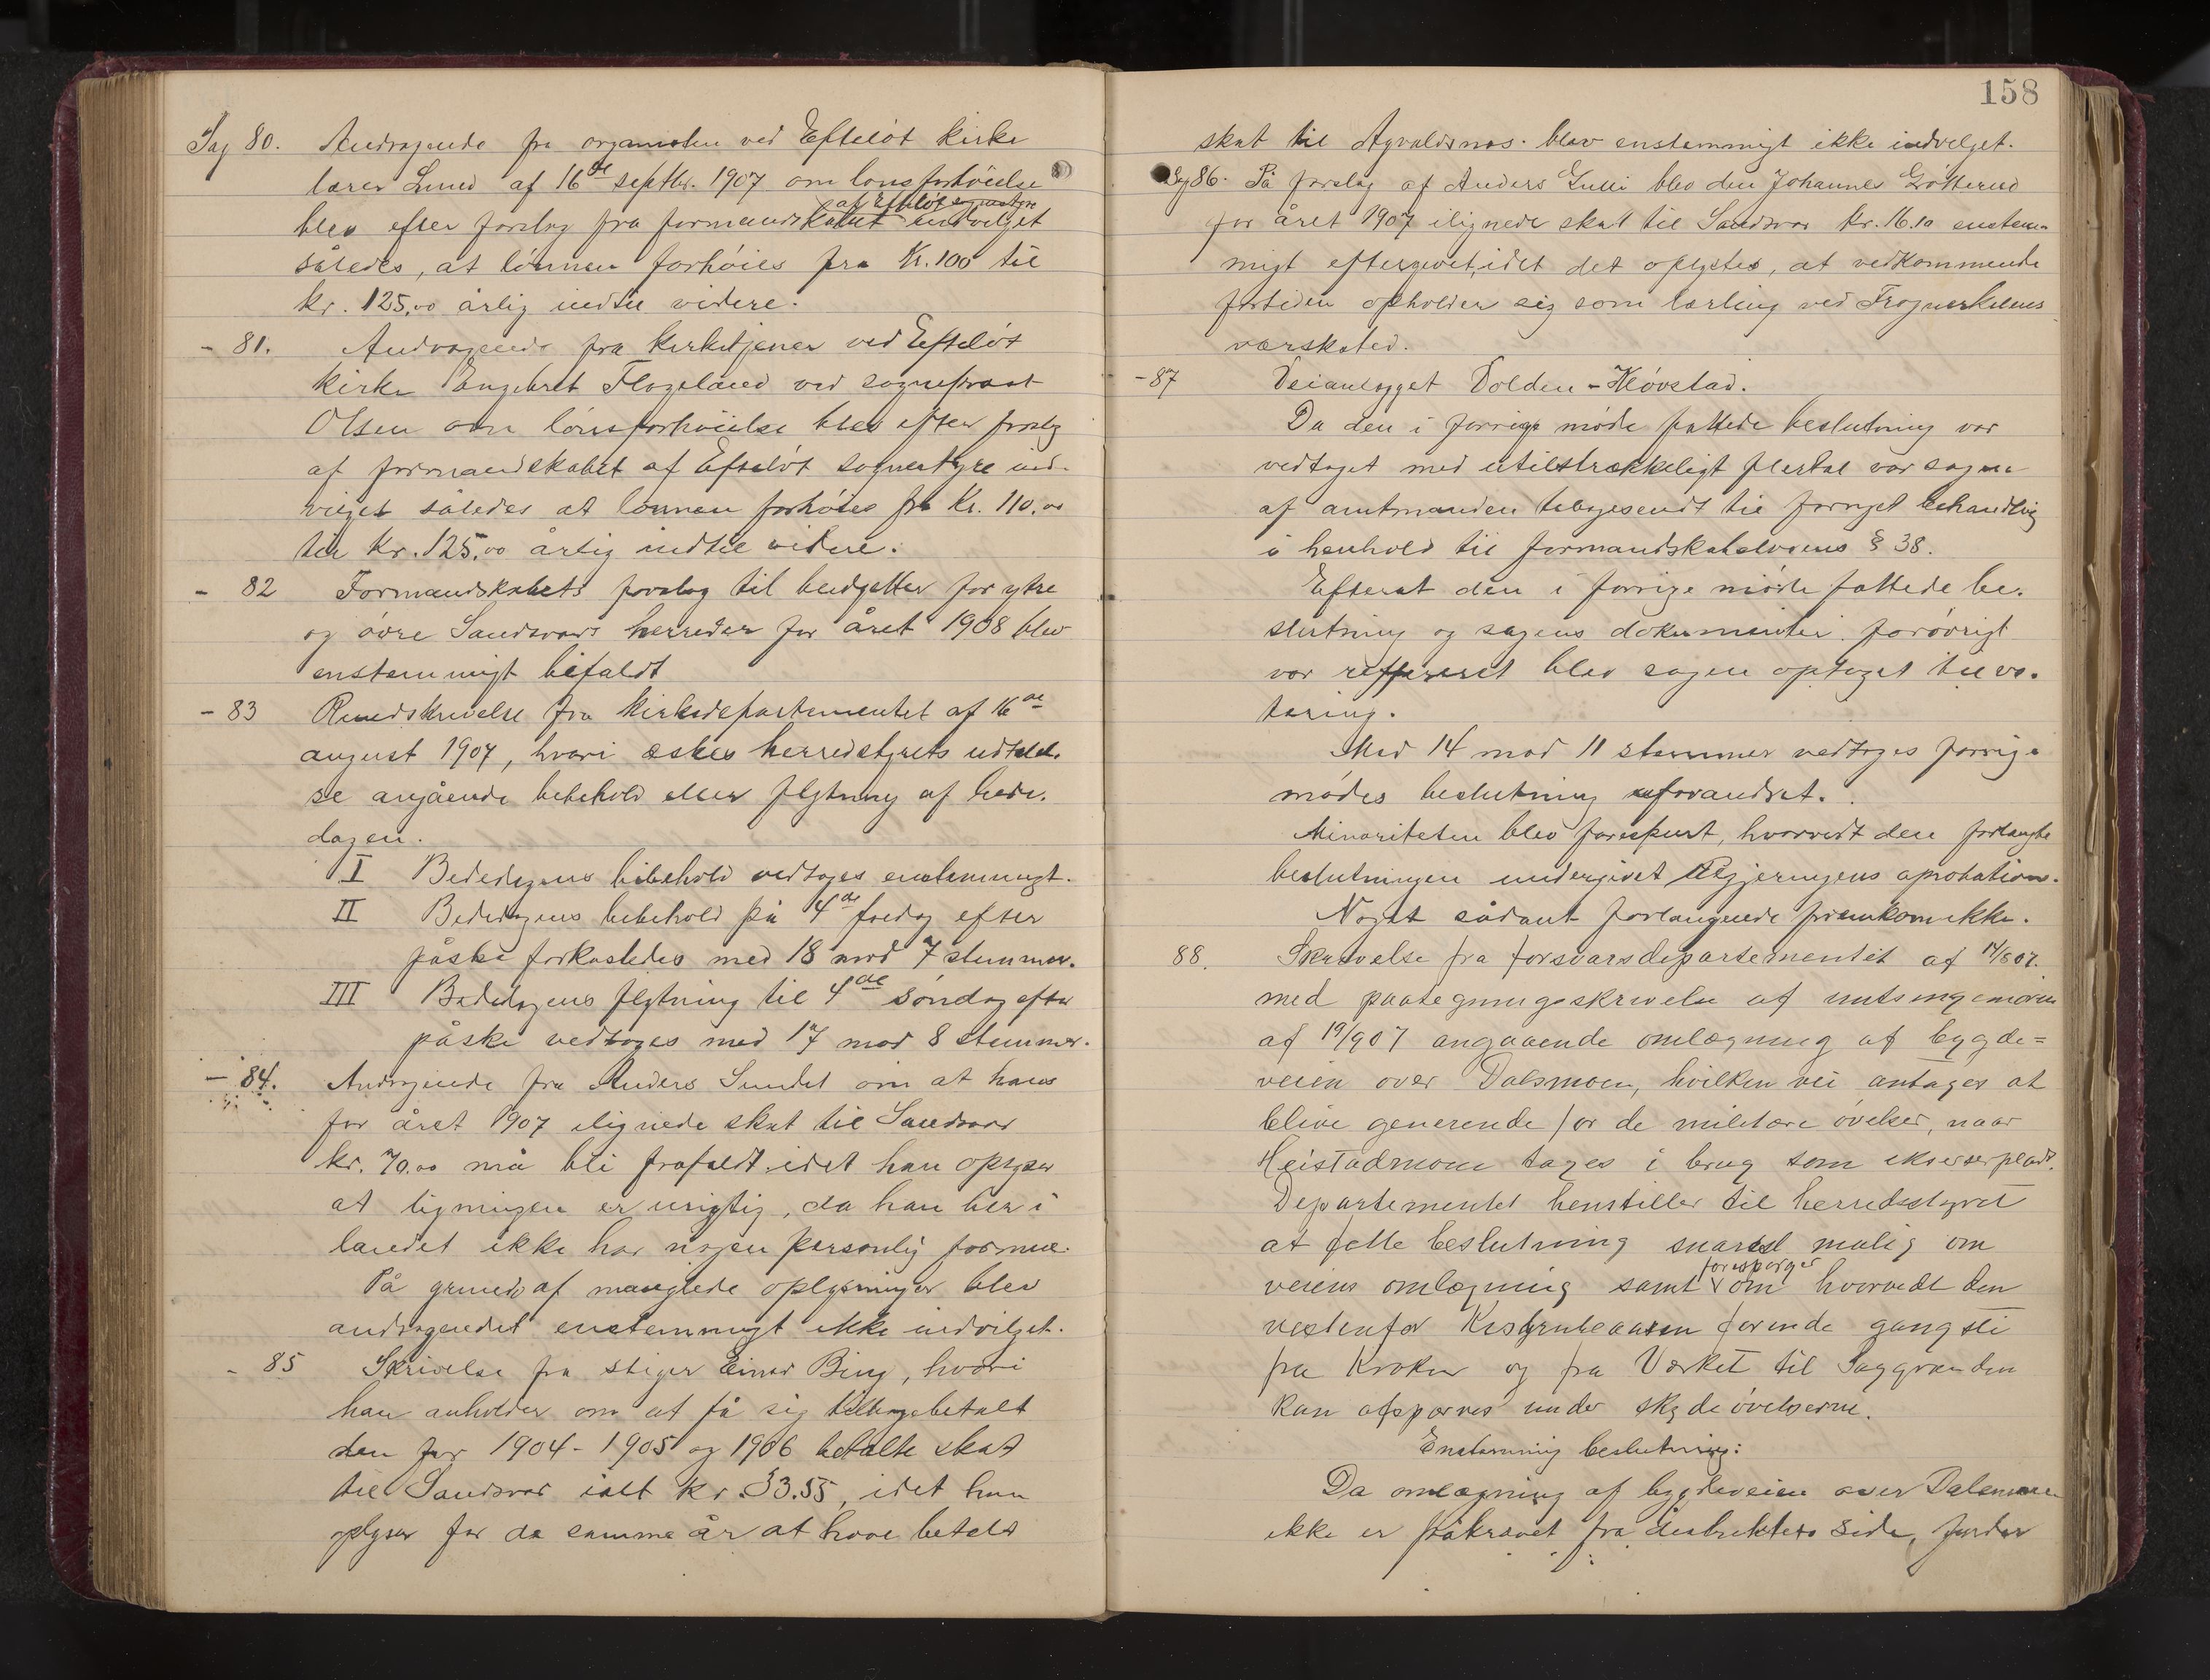 Sag 80. Andragende fra organisten ved Efteløt kirke
lærer Lund af 16de septbr. 1907 om lønsforhöielse
af Efteløt sognestyre
blev efter forslag fra formandskabet indvilget
således, at lönnen forhöies fra Kr. 100 til
kr. 125,00 årlig indtil videre.
- 81. Andragende fra kirketjener ved Efteløt
kirke Engebret Flageland ved sogneprest
Olsen om lönsforhöielse blev efter forslg
af formandskabet af Efteløt sognestyre ind-
vilget således at lönnen forhöies fra Kr. 110,00
til Kr. 125,00 årlig indtil videre.
- 82 Formandskabets forslag til budgetter for ytre
og övre Sandsværs herreder for året 1908 blev
enstemmigt bifaldt
- 83 Rundskrivelse fra kirkedepartementet af 16de
august 1907, hvori æskes herredstyrets udtalel-
se angående bibehold eller flytning af bede-
dagen.
I Bededagens bibehold vedtoges enstemmigt.
II Bededagens bibehold på 4de fredag efter
påske forkastedes med 18 mod 7 stemmer.
III Bededagens flytning til 4de söndag efter
påske vedtoges med 17 mod 8 stemmer.
- 84. Andragende fra Anders Sundet om at hans
for året 1907 ilignede skat til Sandsvær
kr. 70.00 må bli frafaldt, idet han oplyser
at ligningen er urigtig, da han her i
landet ikke har nogen personlig formue.
På grund af manglede oplysninger blev
andragendet enstemmigt ikke indvilget.
- 85 Skrivelse fra stiger Einar Bing, hvori
han anholder om at få sig tilbagebetalt
den for 1904 - 1905 og 1906 betalte skat
til Sandsvær ialt kr. 33.55, idet han
oplyser for de samme år at have betalt
158
skat til Agvaldsnes. blev enstemmigt ikke indvilget.
Sag 86. På forslag af Anders Gulli blev den Johannes Grötterud
for året 1907 ilignede skat til Sandsvær kr. 16.10 enstem-
migt eftergivet, idet det oplystes, at vedkommende
fortiden opholder sig som lærling ved Frognerkilens
værksted.
- 87 Veianlægget Volden - Kløvstad.
Da den i forrige möde fattede beslutning var
vedtaget med utilstrækkeligt flertal var sagen
af amtmanden tilbagesendt til fornyet behandling
i henhold til formandskabslovens § 38.
Efterat den i forrige möde fattede be-
slutning og sagens dokumenter forövrigt
var refereret blev sagen optaget til vo-
tering.
Med 14 mod 11 stemmer vedtoges forrige
mödes beslutning uforandret.
Minoriteten blev forespurt, hvorvidt den forlangte
beslutningen undergivet Regjeringens aprobation.
Noget sådant forlangende fremkom ikke.
88. Skrivelse fra forsvarsdepartementet af 14/8 07.
med paategningsskrivelse af amtsingeniøren
af 19/9 07 angaaende omlægning af bygde=
veien over Dalsmoen, hvilken vei antages at
blive generende for de militære övelser, naar
Heistadmoen tages i brug som ekserserplads.
Departementet henstiller til herredsstyret
at fatte beslutning snarest mulig om
forespørger
veiens omlægning samt om hvorvidt den
vestenfor Kisgrubeaasen førende gangsti
fra Kroken og fra Værket til Saggrænden
kan afspærres under skydeövelserne.
Enstemmig beslutning:
Da omlægning af bygdeveien over Dalsmoen
ikke er påkrævet fra distriktets side, fordor